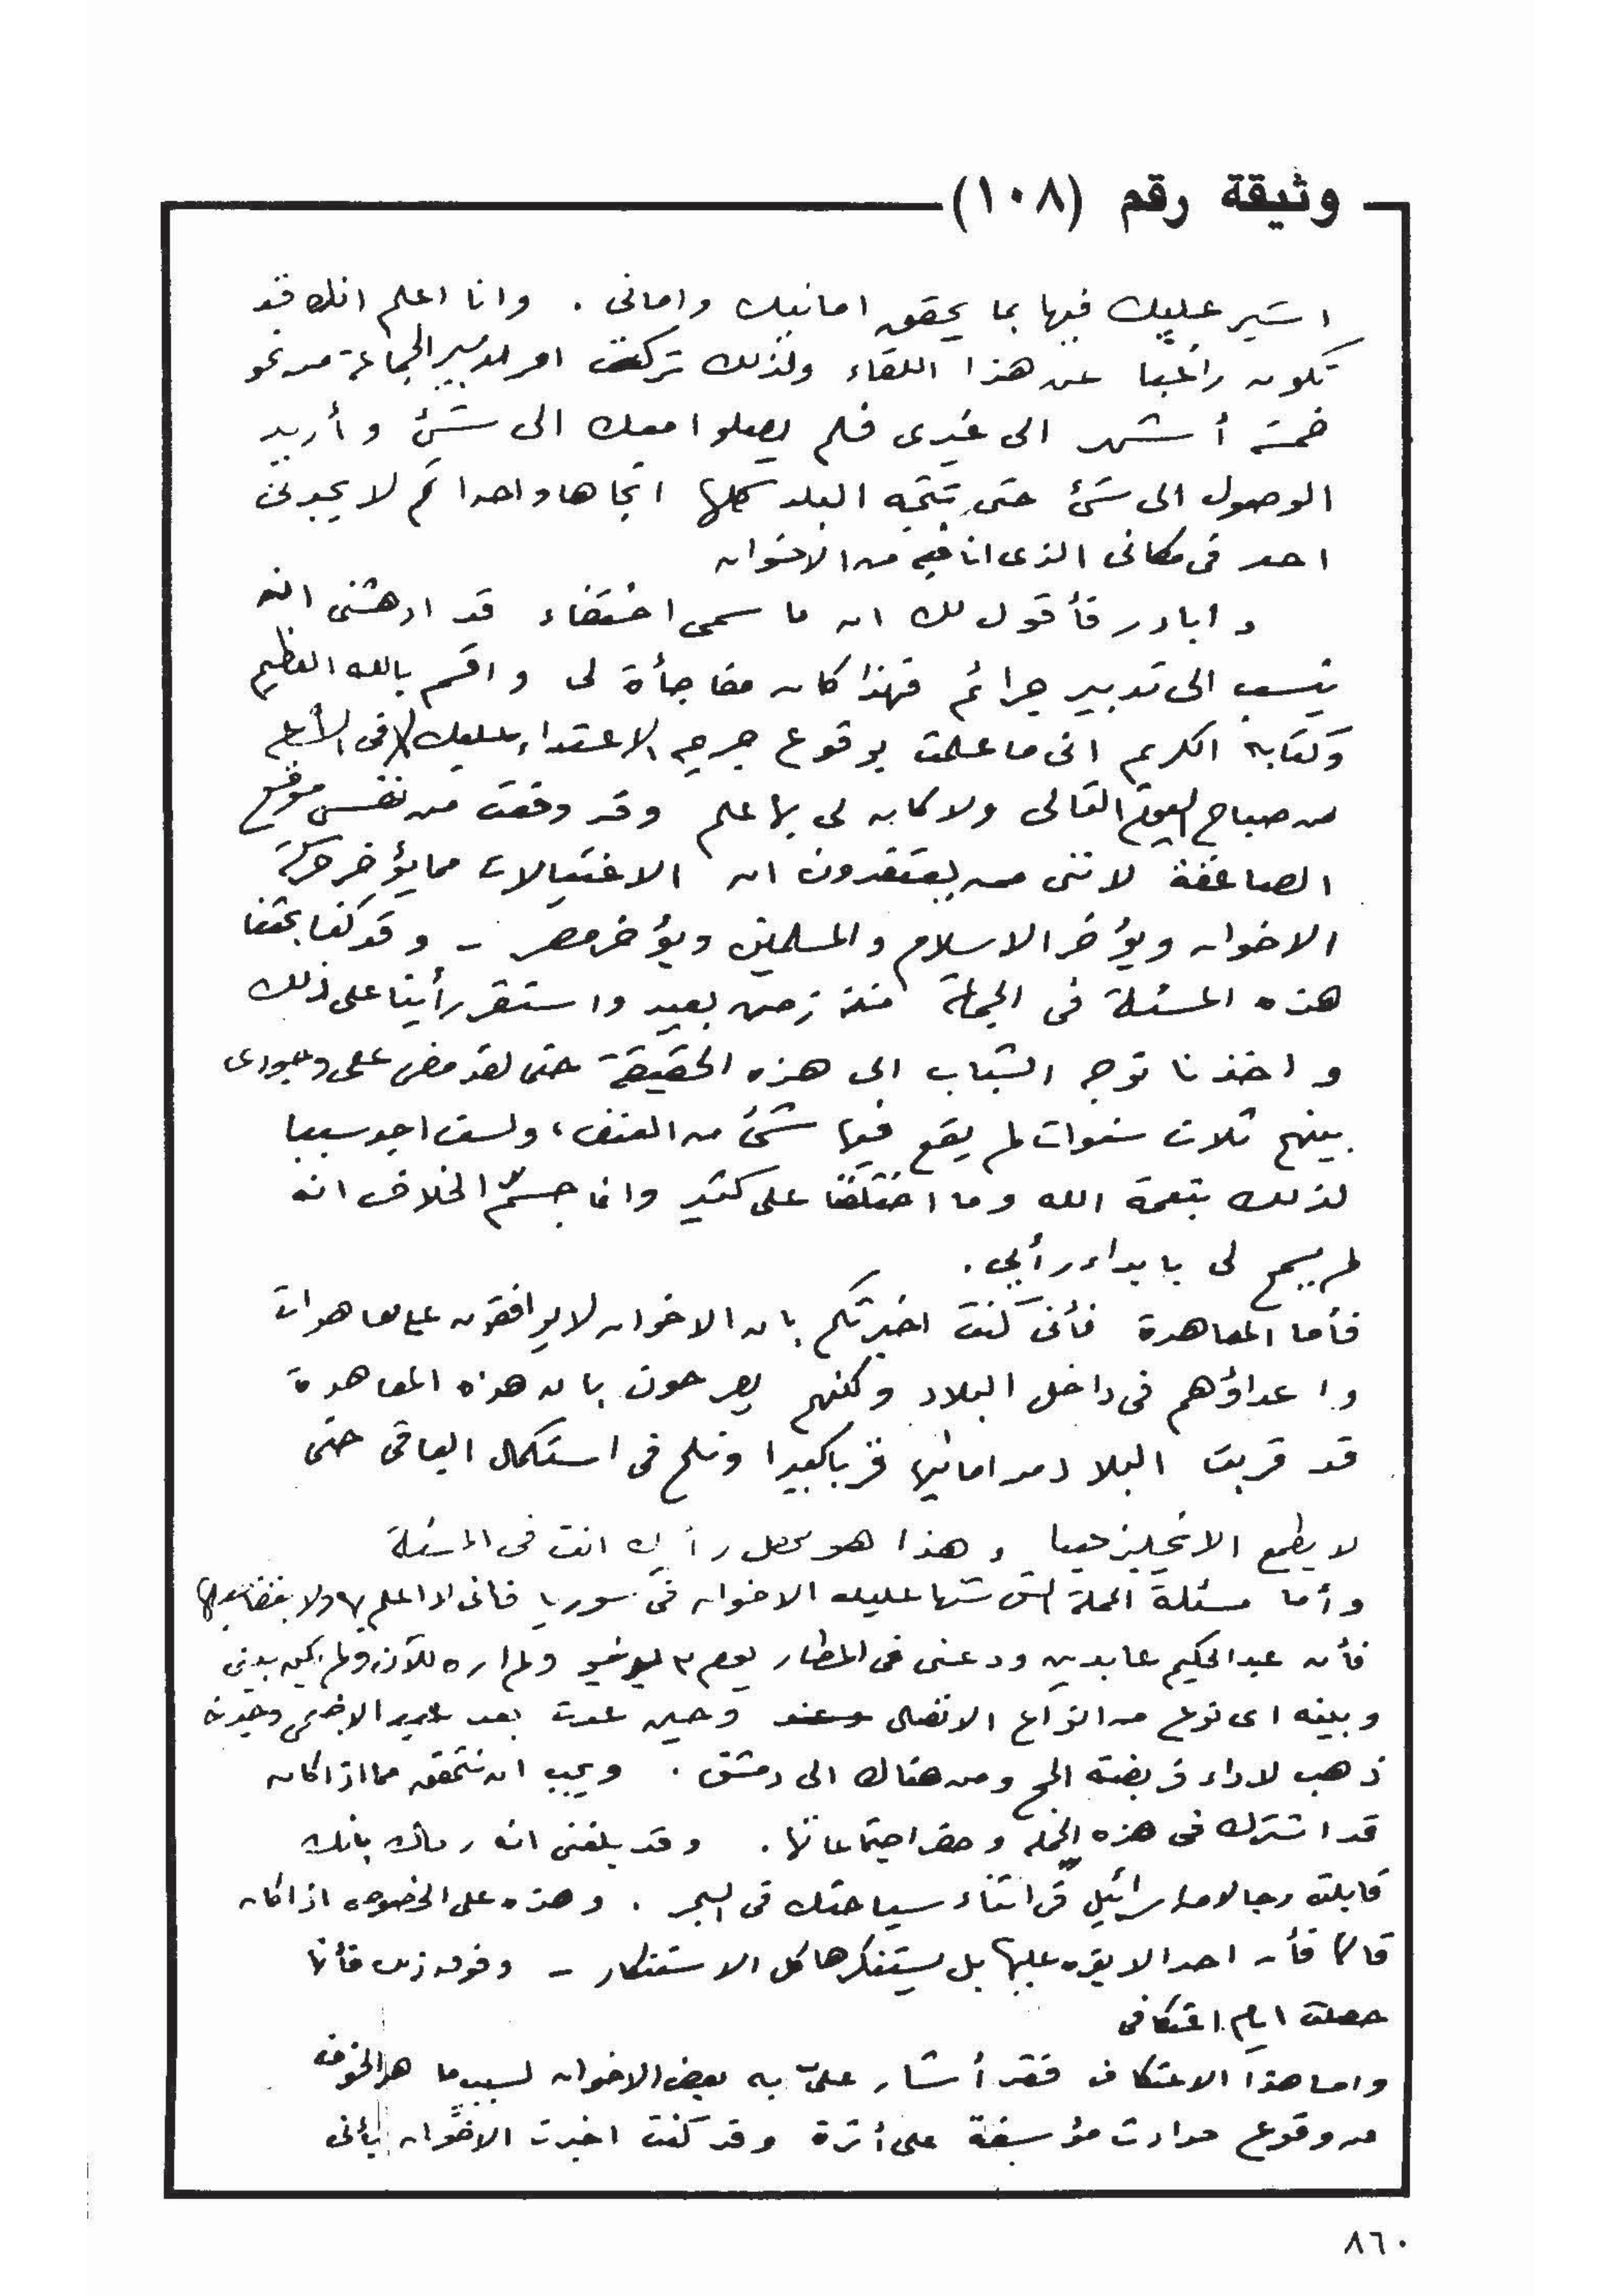 وثيقة رقم (١٠٨)
اشير عليك فيها بما يحقق امانيك وامانى . وانا اعلم انك قد
تكون راغبا عن هذا اللقاء ولذلك تركت امر تدبير الجماعة من نحو
خمسة أشهر الى غيرى فلم يصلوا معك الى شئ وأريد
الوصول الى شئ حتى تتجه البلد كلها اتجاها واحدا ثم لا يجدنى
احد فى مكانى الذى انا فيه من الاخوان
و ابادر فأقول لك ان ما سمى اختفاء قد ادهشنى انه
ينسب الى تدبير جرائم فهذا كان مفاجأة لى واقسم بالله العظيم
وكتابه الكريم انى ما علمت بوقوع جريمة الاعتداء عليك الا فى
من صباح اليوم التالى ولا كان لى بها علم وقد وقعت من نفسى موقع
الصاعقة لاننى ممن يعتقدون ان الاغتيالات مما يؤخر حركة
الاخوان ويؤخر الاسلام والمسلمين ويؤخر مصر - وقد كنا بحثنا
هذه المسئلة فى الجماعة منذ زمن بعيد واستقر رأينا على ذلك
و اخذنا نوجه الشباب الى هذه الحقيقة حتى لقد مضى على وجودى
بينهم ثلاث سنوات لم يقع فيها شئ من العنف، ولست اجد سببا
لذلك بنعمة الله وما اختلفنا على كثير وانما جسّم الخلاف انه
لم يسمح لى بابداء رأيى .
فأما المعاهدة فأنى كنت اخبرتكم بان الاخوان لا يوافقون على معاهدات
واعداؤهم فى داخل البلاد ولكنهم يصرحون بان هذه المعاهدة
قد قربت البلاد من امانيها قربا كبيرا ونلح فى استكمال الباقى حتى
لا يطمع الانجليز فينا وهذا هو محصل رأيك انت فى المسئلة
وأما مسئلة الحملة التى شنها عليك الاخوان فى سوريا فانى لا اعلم بها ولا
فأن عبد الحكيم عابدين ودعنى فى المطار يوم ٣ يونيو ولم اره للآن ولم يكن بينى
وبينه اى نوع من انواع الاتصال وحين عدت بعد عيد الاضحى وجدته
ذهب لاداء فريضة الحج ومن هناك الى دمشق . ويجب ان نتحقق مما اذا كان
قد اشترك فى هذه الحملة وحضر اجتماعاتها . وقد بلغنى انه رماك بانك
قابلت رجالا من اسرائيل فى اثناء سياحتك فى البحر . وهذه على الخصوص اذا كان
قالها فأن احدا لا يقره عليها بل يستنكرها كل الاستنكار - وفوق ذلك فأنها
حصلت ايام اعتكافى
واما هذا الاعتكاف فقد أشار علىّ به بعض الاخوان لسبب ما هو الخوف
من وقوع حوادث مؤسفة على أثره وقد كنت اخبرت الاخوان بأنى
٨٦٠